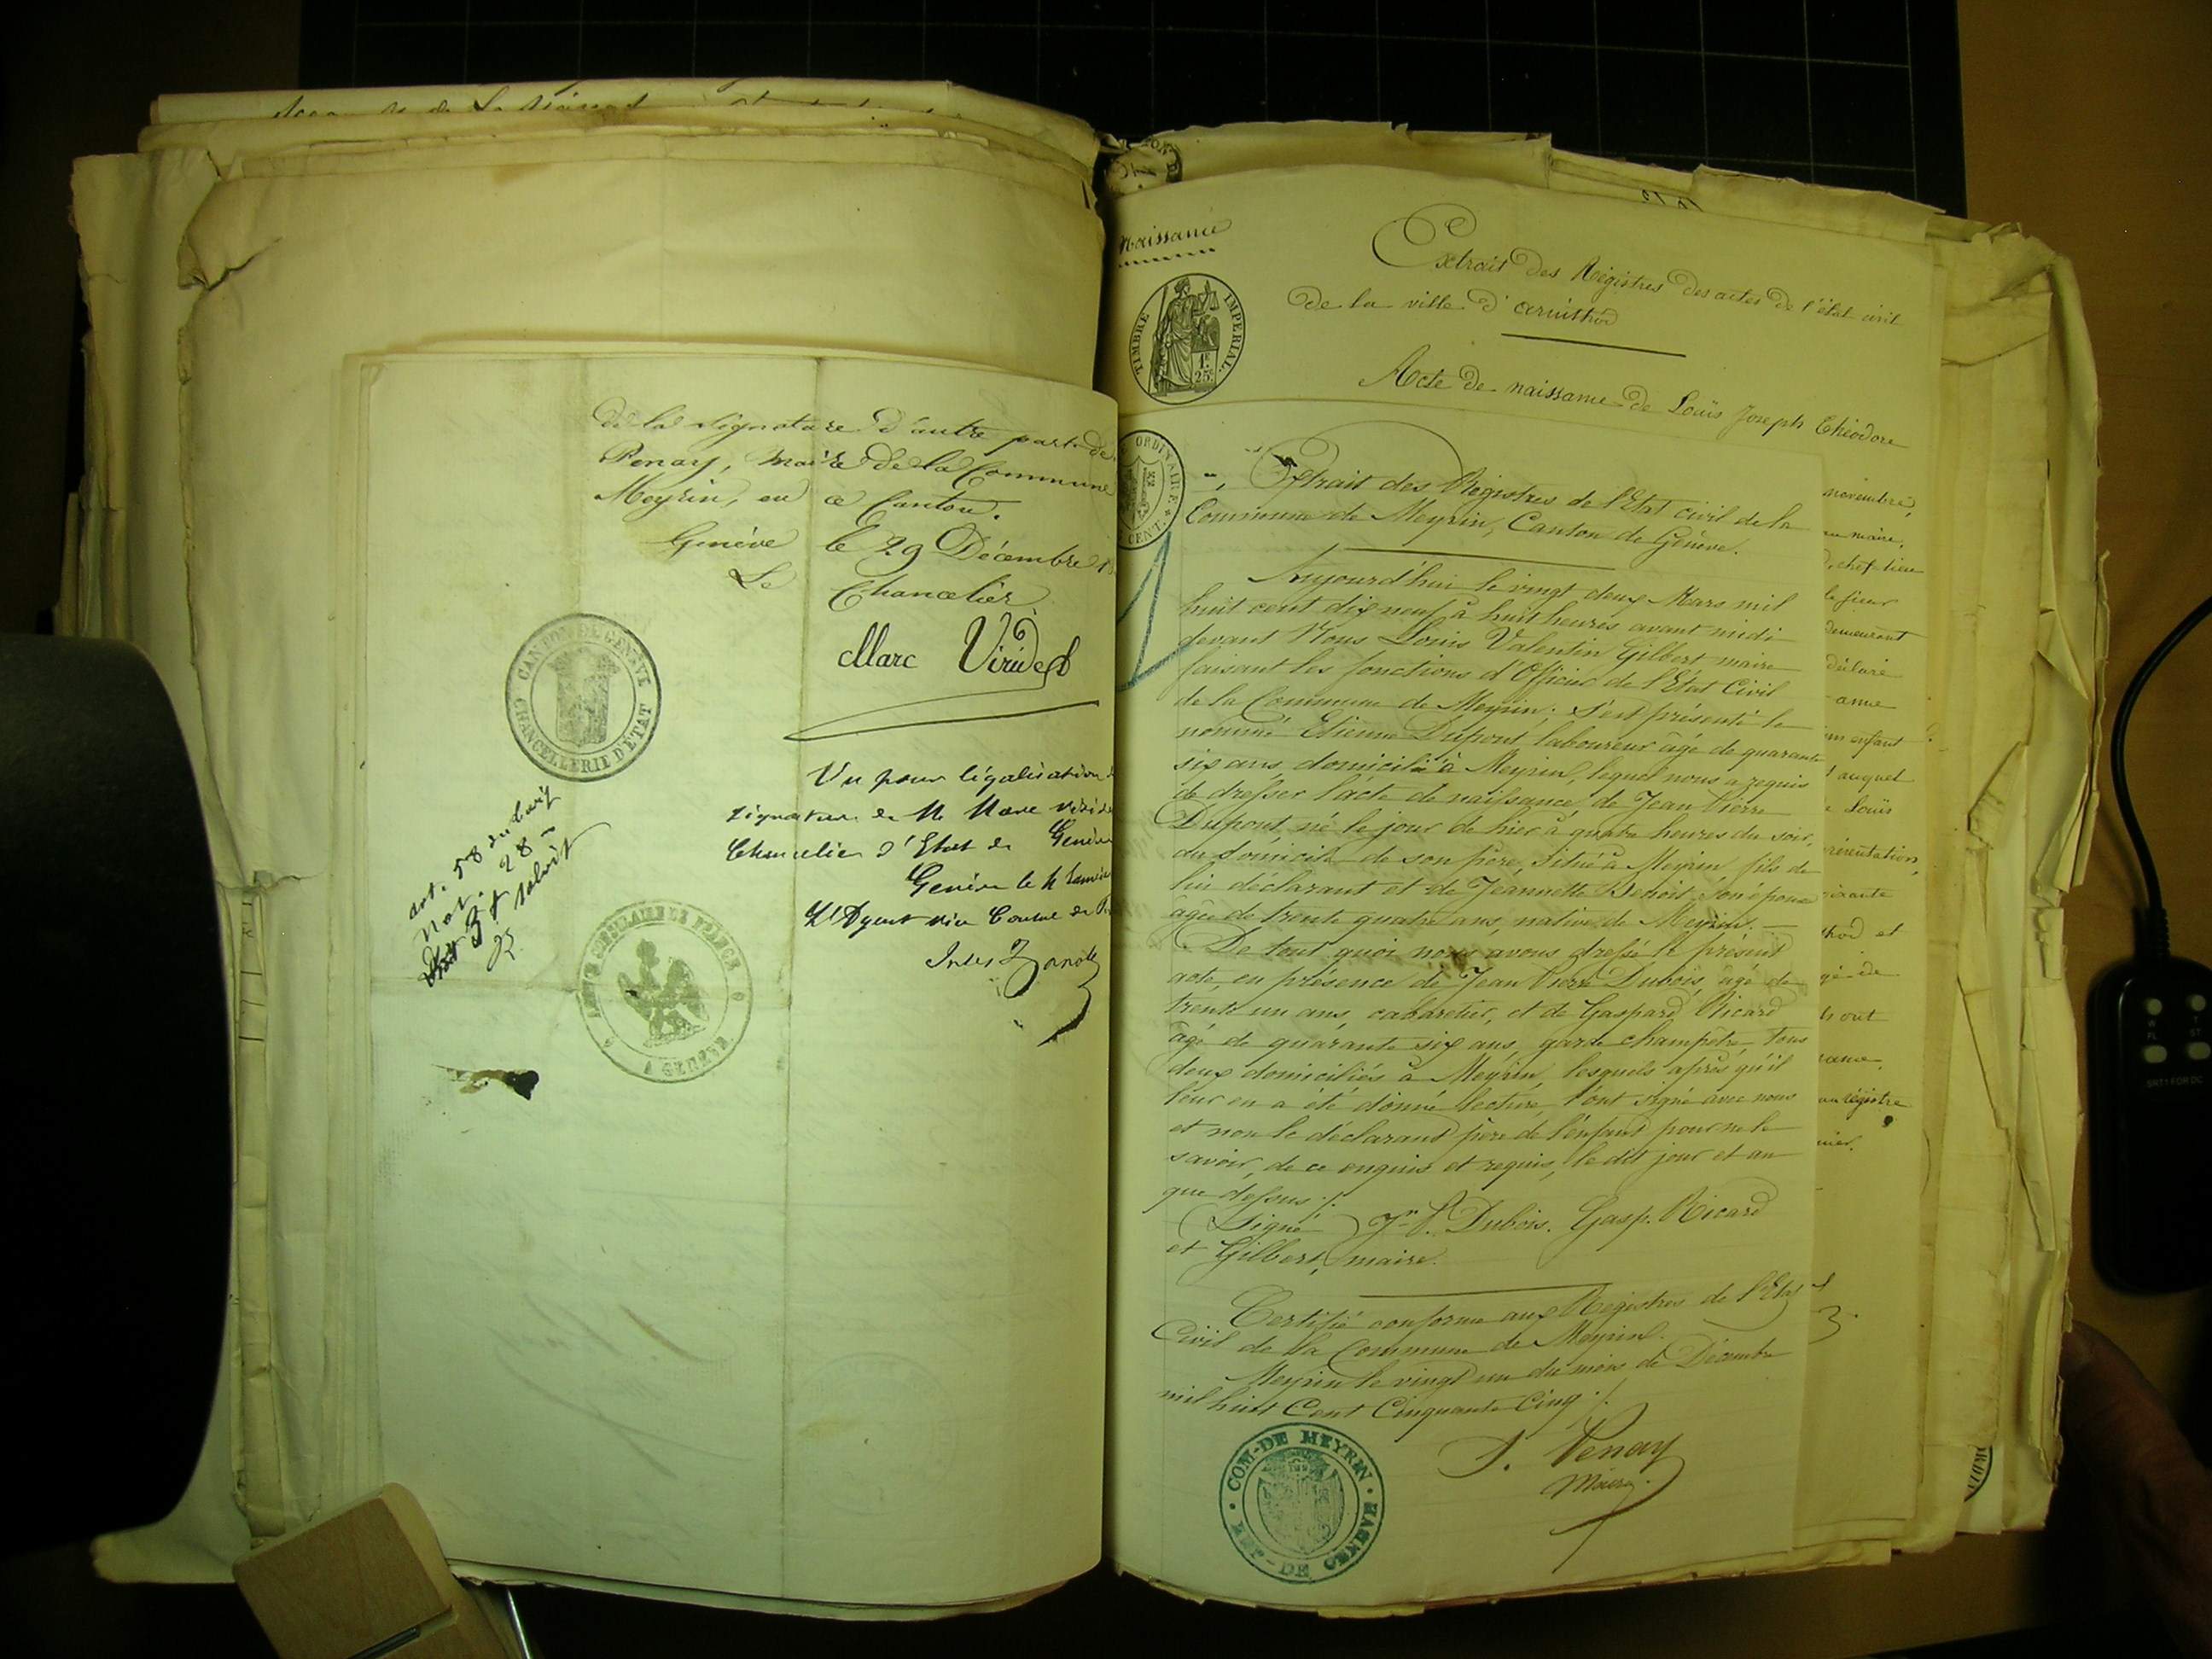 de la signature d'autre part de
Penay, Maire de la Commune
Meyrin, en ce Canton.
Genève le 29 Décembre
Le Chancelier
Marc Viridet
CANTON DE GENEVE
CHANCELLERIE D'ETAT
Vu pour légalisation
signature de M. Marc
Chancelier d'Etat de Genève
Genève le
L'Agent vice Consul de
Jules
art. 58 du
28
AGENCE CONSULAIRE DE FRANCE
A GENEVE
Naissance
TIMBRE IMPERIAL
1F
25C
Extrait des Régistres des actes de l'état civil
de la ville d'arinthod
Acte de naissance de Louis Joseph Théodore
ORDINAIRE
CENT.
Extrait des Registres de l'Etat civil de la
Commune de Meyrin, Canton de Genève.
Aujourd'hui le vingt deux Mars mil
huit cent dix neuf à huit heures avant midi
devant Nous Louis Valentin Gilbert maire
faisant les fonctions d'Officier de l'Etat Civil
de la Commune de Meyrin; s'est présenté le
nommé Etienne Dupont laboureur âgé de quarante
six ans, domicilié à Meyrin, lequel nous a requis
de dresser l'acte de naissance de Jean Pierre
Dupont, né le jour de hier à quatre heures du soir,
au domicile de son père, situé à Meyrin, fils de
lui déclarant et de Jeannette Benoit son épouse
âgée de trente quatre ans, native de Meyrin.
De tout quoi nous avons dressé le présent
acte, en présence de Jean Pierre Dubois, âgé de
trente un ans, cabaretier, et de Gaspard Ricard
âgé de quarante six ans, garde champêtre, tous
deux domiciliés à Meyrin, lesquels après qu'il
leur en a été donné lecture, l'ont signé avec nous
et non le déclarant père de l'enfant pour ne le
savoir, de ce enquis et requis, le dit jour et an
que dessus
Signé Jn P. Dubois. Gasp. Ricard
et Gilbert, maire.
Certifié conforme aux Registres de l'Etat
Civil de la Commune de Meyrin.
Meyrin le vingt un du mois de Décembre
mil huit Cent Cinquante Cinq
COM. DE MEYRIN
REP. DE GENEVE
Penay
Maire
novembre,
maire,
chef lieu
le sieur
demeurant
déclaré
enfant
auquel
Louis
présentation,
et
de
ont
registre